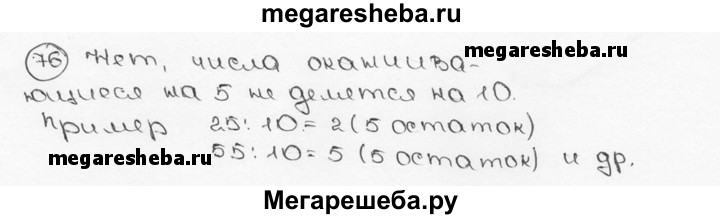 megaresheba.ru
76 Нет, числа оканчива-
megaresheba.ru
ющиеся на 5 не делятся на 10.
Пример 25:10=2(5 остаток)
megaresheba.ru
55:10=5 (5 остаток) и др.
Мегарешеба.ру